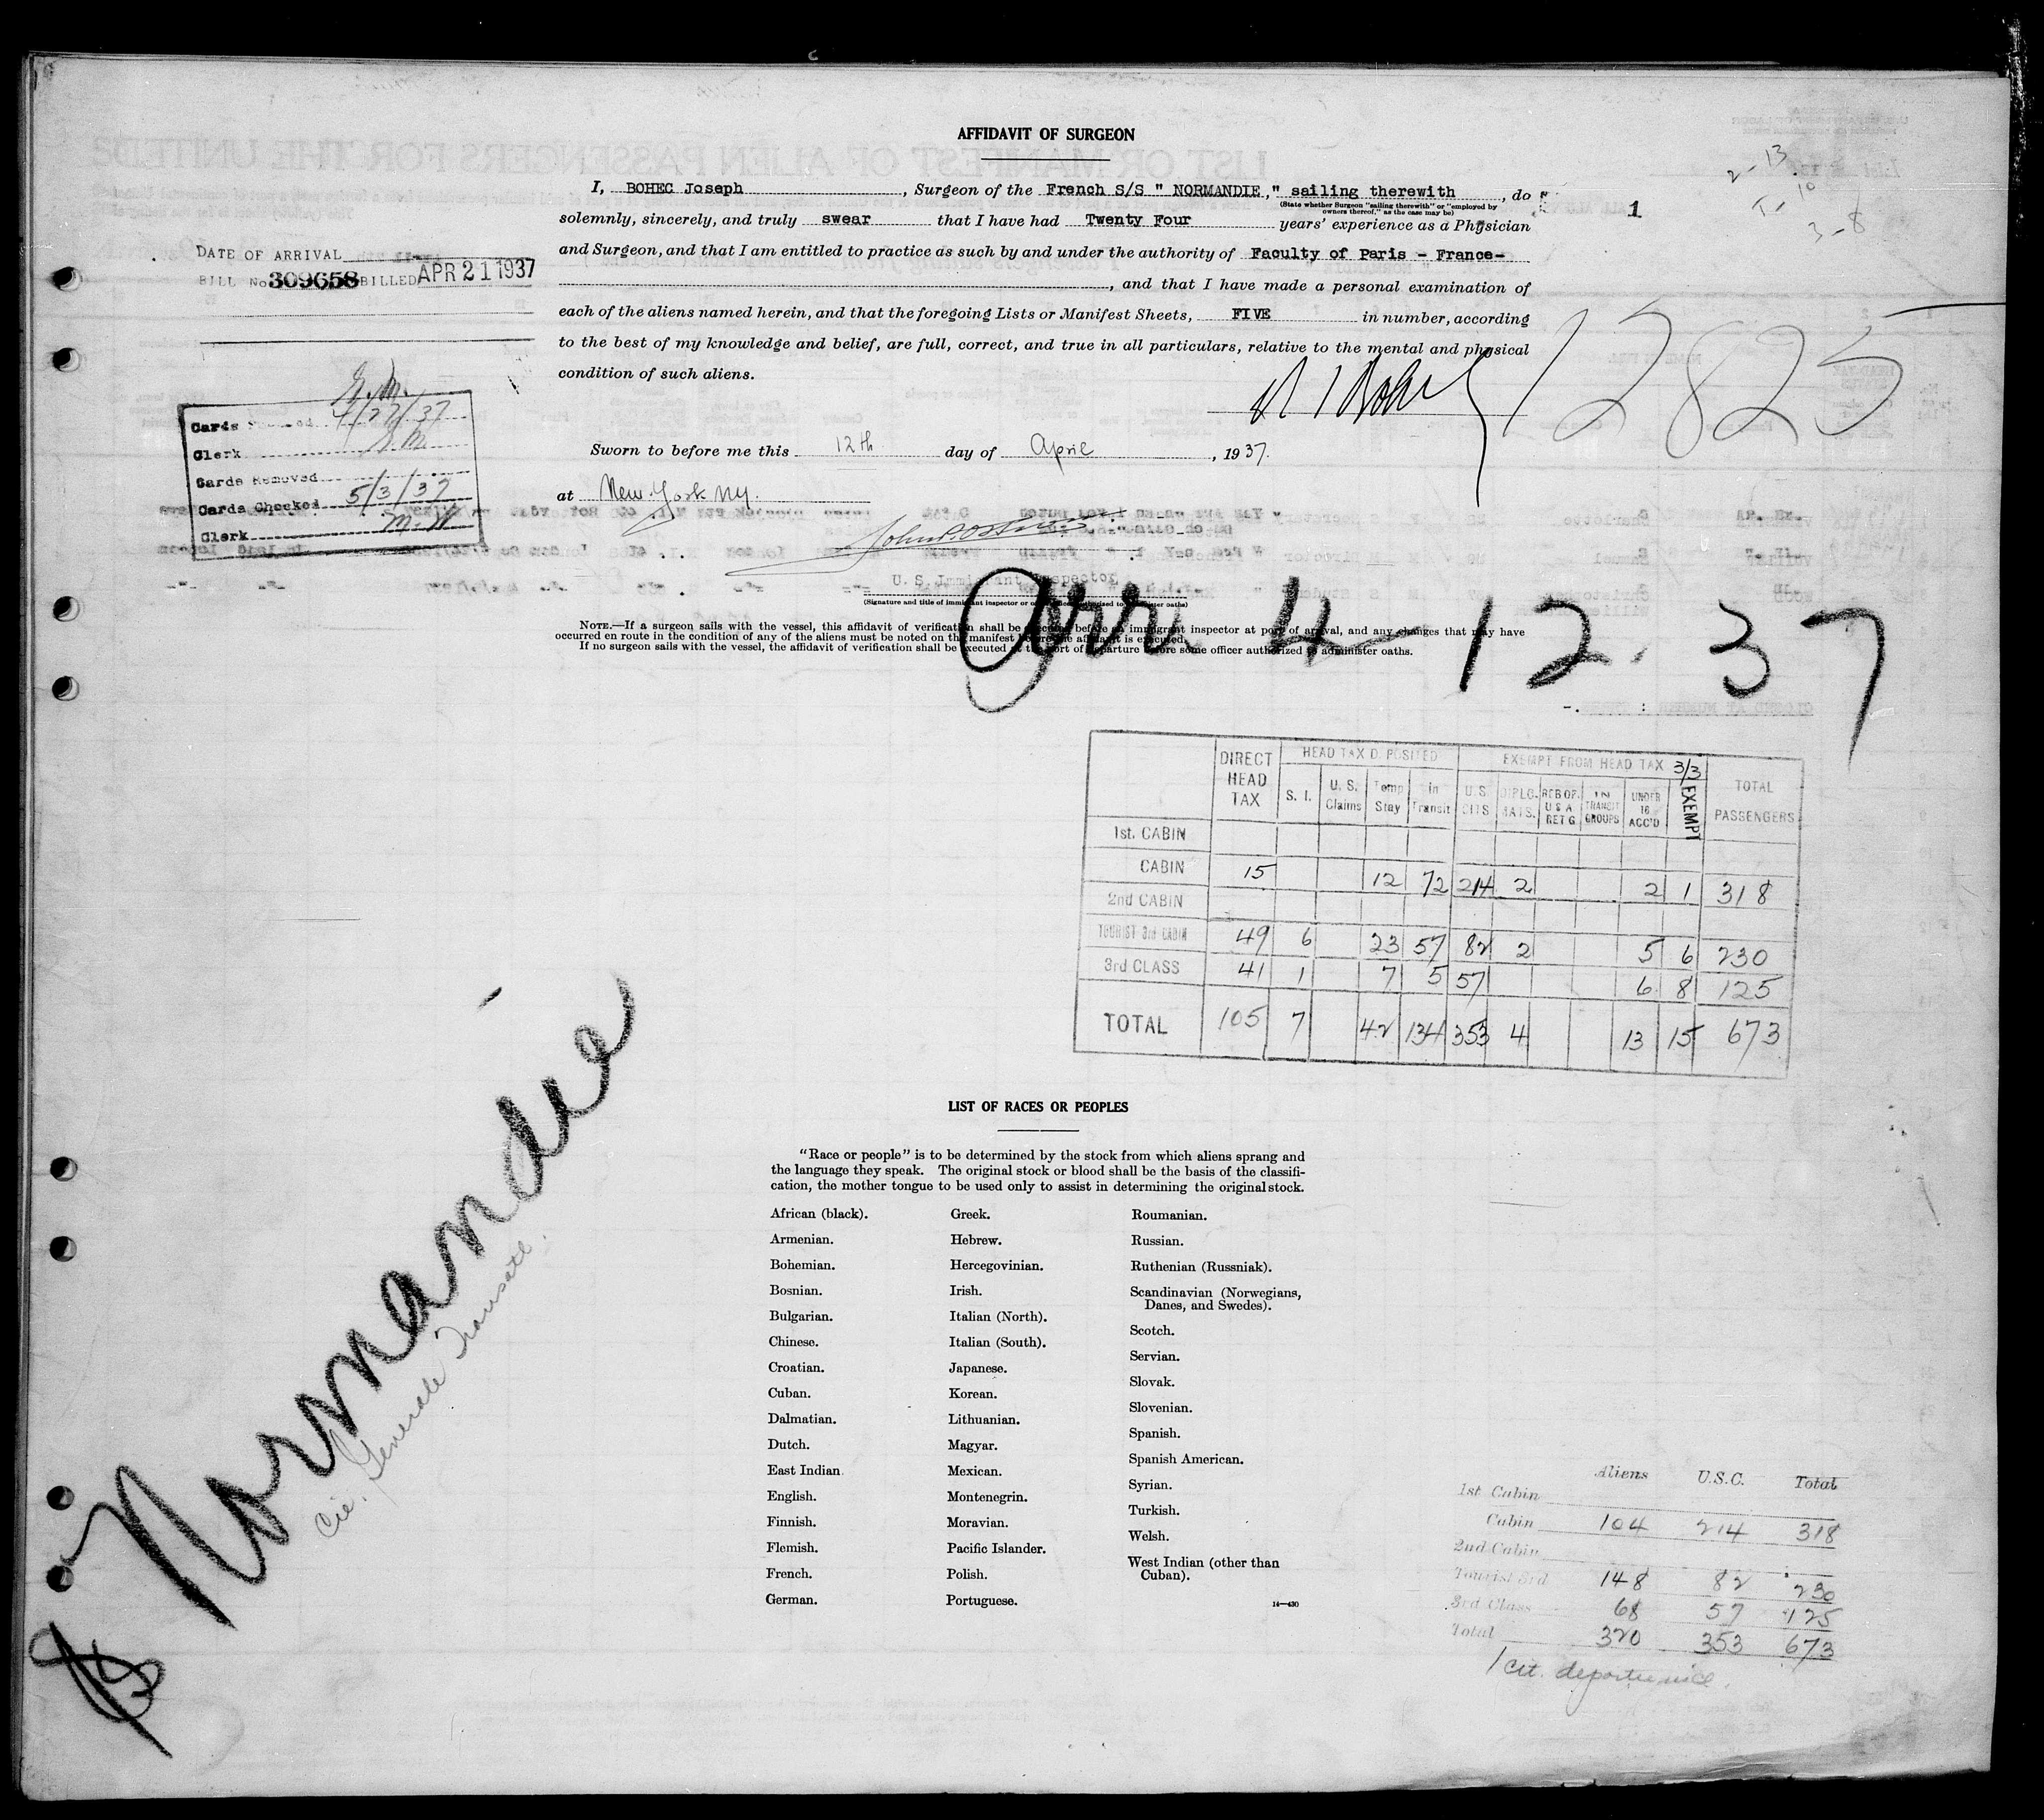 AFFIDAVIT OF SURGEON
I, BOHEC Joseph, Surgeon of the French S/S " NORMANDIE," sailing therewith, do
(State whether Surgeon "sailing therewith" or "employed by
owners thereof," as the case may be)
solemnly, sincerely, and truly swear that I have had Twenty Four years' experience as a Physician
and Surgeon, and that I am entitled to practice as such by and under the authority of Faculty of Paris - France-
, and that I have made a personal examination of
each of the aliens named herein, and that the foregoing Lists or Manifest Sheets, FIVE in number, according
to the best of my knowledge and belief, are full, correct, and true in all particulars, relative to the mental and physical
condition of such aliens.
2-13
10
3-8
1
DATE OF ARRIVAL
BILL No 309658 BILLED APR 21 1937
12825
Cards 4/27/37
Clerk
Cards Removed
Cards Checked 5/3/37
Clerk M.W
Sworn to before me this 12th day of April, 1937.
at New York NY.
U. S. Immigrant Inspector
(Signature and title of immigrant inspector or officer authorized to administer oaths)
Arr 4-12-37
NOTE.—If a surgeon sails with the vessel, this affidavit of verification shall be executed before an immigrant inspector at port of arrival, and any changes that may have
occurred en route in the condition of any of the aliens must be noted on the manifest before the affidavit is executed.
If no surgeon sails with the vessel, the affidavit of verification shall be executed at the port of departure before some officer authorized to administer oaths.
DIRECT HEAD TAX HEAD TAX D POSITED EXEMPT FROM HEAD TAX 3/3 TOTAL PASSENGERS
S. I. U. S. Claims Temp Stay In Transit U.S. CITS DIPLO-MATS. REB OF. U S A RET G IN TRANSIT GROUPS UNDER 16 ACC'D EXEMPT
1st. CABIN
CABIN 15 12 72 214 2 2 1 318
2nd CABIN
TOURIST 3rd CABIN 49 6 23 57 82 2 5 6 230
3rd CLASS 41 1 7 5 57 6 8 125
TOTAL 105 7 42 134 353 4 13 15 673
Normandie
Cie. Generale Transatl.
LIST OF RACES OR PEOPLES
"Race or people" is to be determined by the stock from which aliens sprang and
the language they speak. The original stock or blood shall be the basis of the classifi-
cation, the mother tongue to be used only to assist in determining the original stock.
African (black).
Armenian.
Bohemian.
Bosnian.
Bulgarian.
Chinese.
Croatian.
Cuban.
Dalmatian.
Dutch.
East Indian
English.
Finnish.
Flemish.
French.
German.
Greek.
Hebrew.
Hercegovinian.
Irish.
Italian (North).
Italian (South).
Japanese.
Korean.
Lithuanian.
Magyar.
Mexican.
Montenegrin.
Moravian.
Pacific Islander.
Polish.
Portuguese.
Roumanian.
Russian.
Ruthenian (Russniak).
Scandinavian (Norwegians,
Danes, and Swedes).
Scotch.
Servian.
Slovak.
Slovenian.
Spanish.
Spanish American.
Syrian.
Turkish.
Welsh.
West Indian (other than
Cuban).
14—430
Aliens U.S.C. Total
1st Cabin
Cabin 104 214 318
2nd Cabin
Tourist 3rd 148 82 230
3rd Class 68 57 125
Total 320 353 673
1 cit.